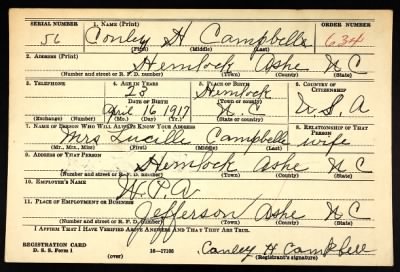 SERIAL NUMBER 1. NAME (Print) ORDER NUMBER
56 Conley H Campbell 634
(First) (Middle) (Last)
2. ADDRESS (Print)
Hemlock Ashe N C
(Number and street or R. F. D. number) (Town) (County) (State)
3. TELEPHONE 4. AGE IN YEARS 5. PLACE OF BIRTH 6. COUNTRY OF CITIZENSHIP
23 Hemlock
DATE OF BIRTH (Town or county)
April 16 1917 N. C. U. S. A
(Exchange) (Number) (Mo.) (Day) (Yr.) (State or country)
7. NAME OF PERSON WHO WILL ALWAYS KNOW YOUR ADDRESS 8. RELATIONSHIP OF THAT PERSON
Mrs Lucille Campbell wife
(Mr., Mrs., Miss) (First) (Middle) (Last)
9. ADDRESS OF THAT PERSON
Hemlock Ashe N C
(Number and street or R. F. D. number) (Town) (County) (State)
10. EMPLOYER'S NAME
W.P.A
11. PLACE OF EMPLOYMENT OR BUSINESS
Jefferson Ashe N C
(Number and street or R. F. D. number) (Town) (County) (State)
I AFFIRM THAT I HAVE VERIFIED ABOVE ANSWERS AND THAT THEY ARE TRUE.
REGISTRATION CARD
D. S. S. Form 1 (over) 16—17105 Conley H Campbell
(Registrant's signature)